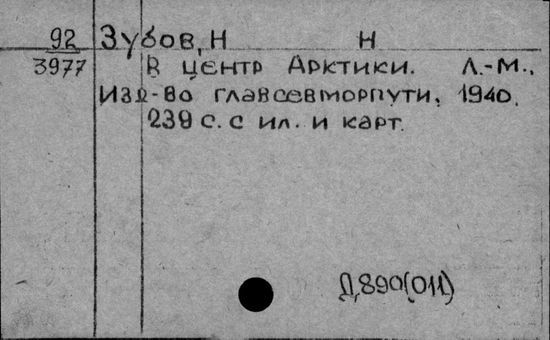 92 Зубов, Н Н
3977 В центр Арктики. Л.-М.,
Изд-во главсевморпути, 1940.
239 с. с ил. и карт.
Д,890(011)